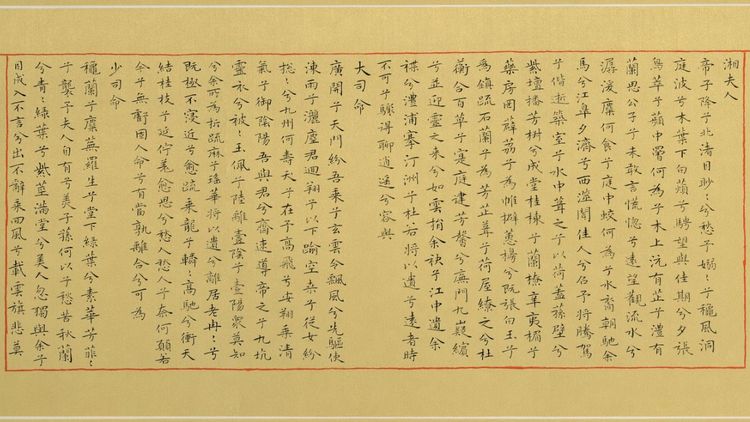 湘夫人
帝子降兮北渚目眇〻兮愁予嫋〻兮穐風洞
庭波兮木葉下白薠兮騁望與佳期兮夕張
鳥萃兮蘋中罾何為兮木上沅有芷兮澧有
蘭思公子兮未敢言慌惚兮遠望觀流水兮
潺湲麋何食兮庭中蛟何為兮水裔朝馳余
馬兮江皋夕濟兮西澨聞佳人兮召予將騰駕
兮偕逝築室兮水中葺之兮以荷蓋蓀壁兮
紫壇播芳椒兮成堂桂棟兮蘭橑辛夷楣兮
藥房罔薜荔兮為帷擗蕙櫋兮既張白玉兮
為鎮疏石蘭兮為芳芷葺兮荷屋繚之兮杜
蘅合百草兮寔庭建芳馨兮廡門九嶷繽
兮並迎靈之來兮如雲捐余袂兮江中遺余
褋兮澧浦搴汀洲兮杜若將以遺兮遠者時
不可兮驟得聊逍遙兮容與
大司命
廣開兮天門紛吾乘兮玄雲令飄風兮先驅使
涷雨兮灑塵君迴翔兮以下踰空桑兮從女紛
揔〻兮九州何壽夭兮在予高飛兮安翔乘清
氣兮御陰陽吾與君兮齊速導帝之兮九坑
靈衣兮被〻玉佩兮陸離壹陰兮壹陽衆莫知
兮余所為折疏麻兮瑤華將以遺兮離居老冉〻兮
既極不寖近兮愈疏乘龍兮轔〻高馳兮衝天
結桂枝兮延佇羌愈思兮愁人愁人兮奈何願若
今兮無虧固人命兮有當孰離合兮可為
少司命
穐蘭兮麋蕪羅生兮堂下綠葉兮素華芳菲〻
兮襲予夫人自有兮美子蓀何以兮愁苦秋蘭
兮青〻綠葉兮紫莖滿堂兮美人忽獨與余兮
目成入不言兮出不辭乘回風兮載雲旗悲莫